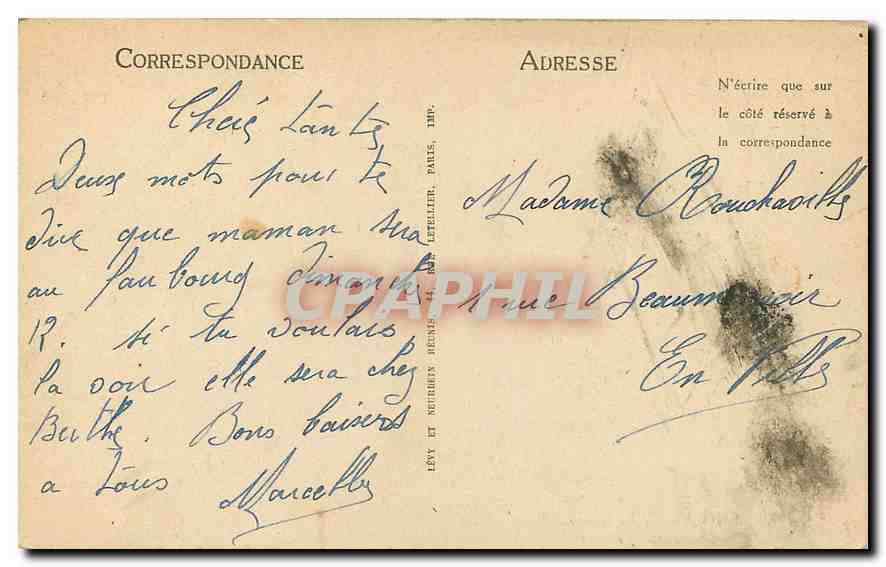 CORRESPONDANCE
Chère tante
Deux mots pour te
dire que maman sera
au faubourg dimanche
12. si tu voulais
la voir elle sera chez
Berthe. Bons baisers
a tous Marcelle
LÉVY ET NEURDEIN RÉUNIS, 44, RUE LETELLIER, PARIS, IMP.
ADRESSE
N'écrire que sur
le côté réservé à
la correspondance
Madame
1 rue Beaumanoir
En Ville
CPAPHIL